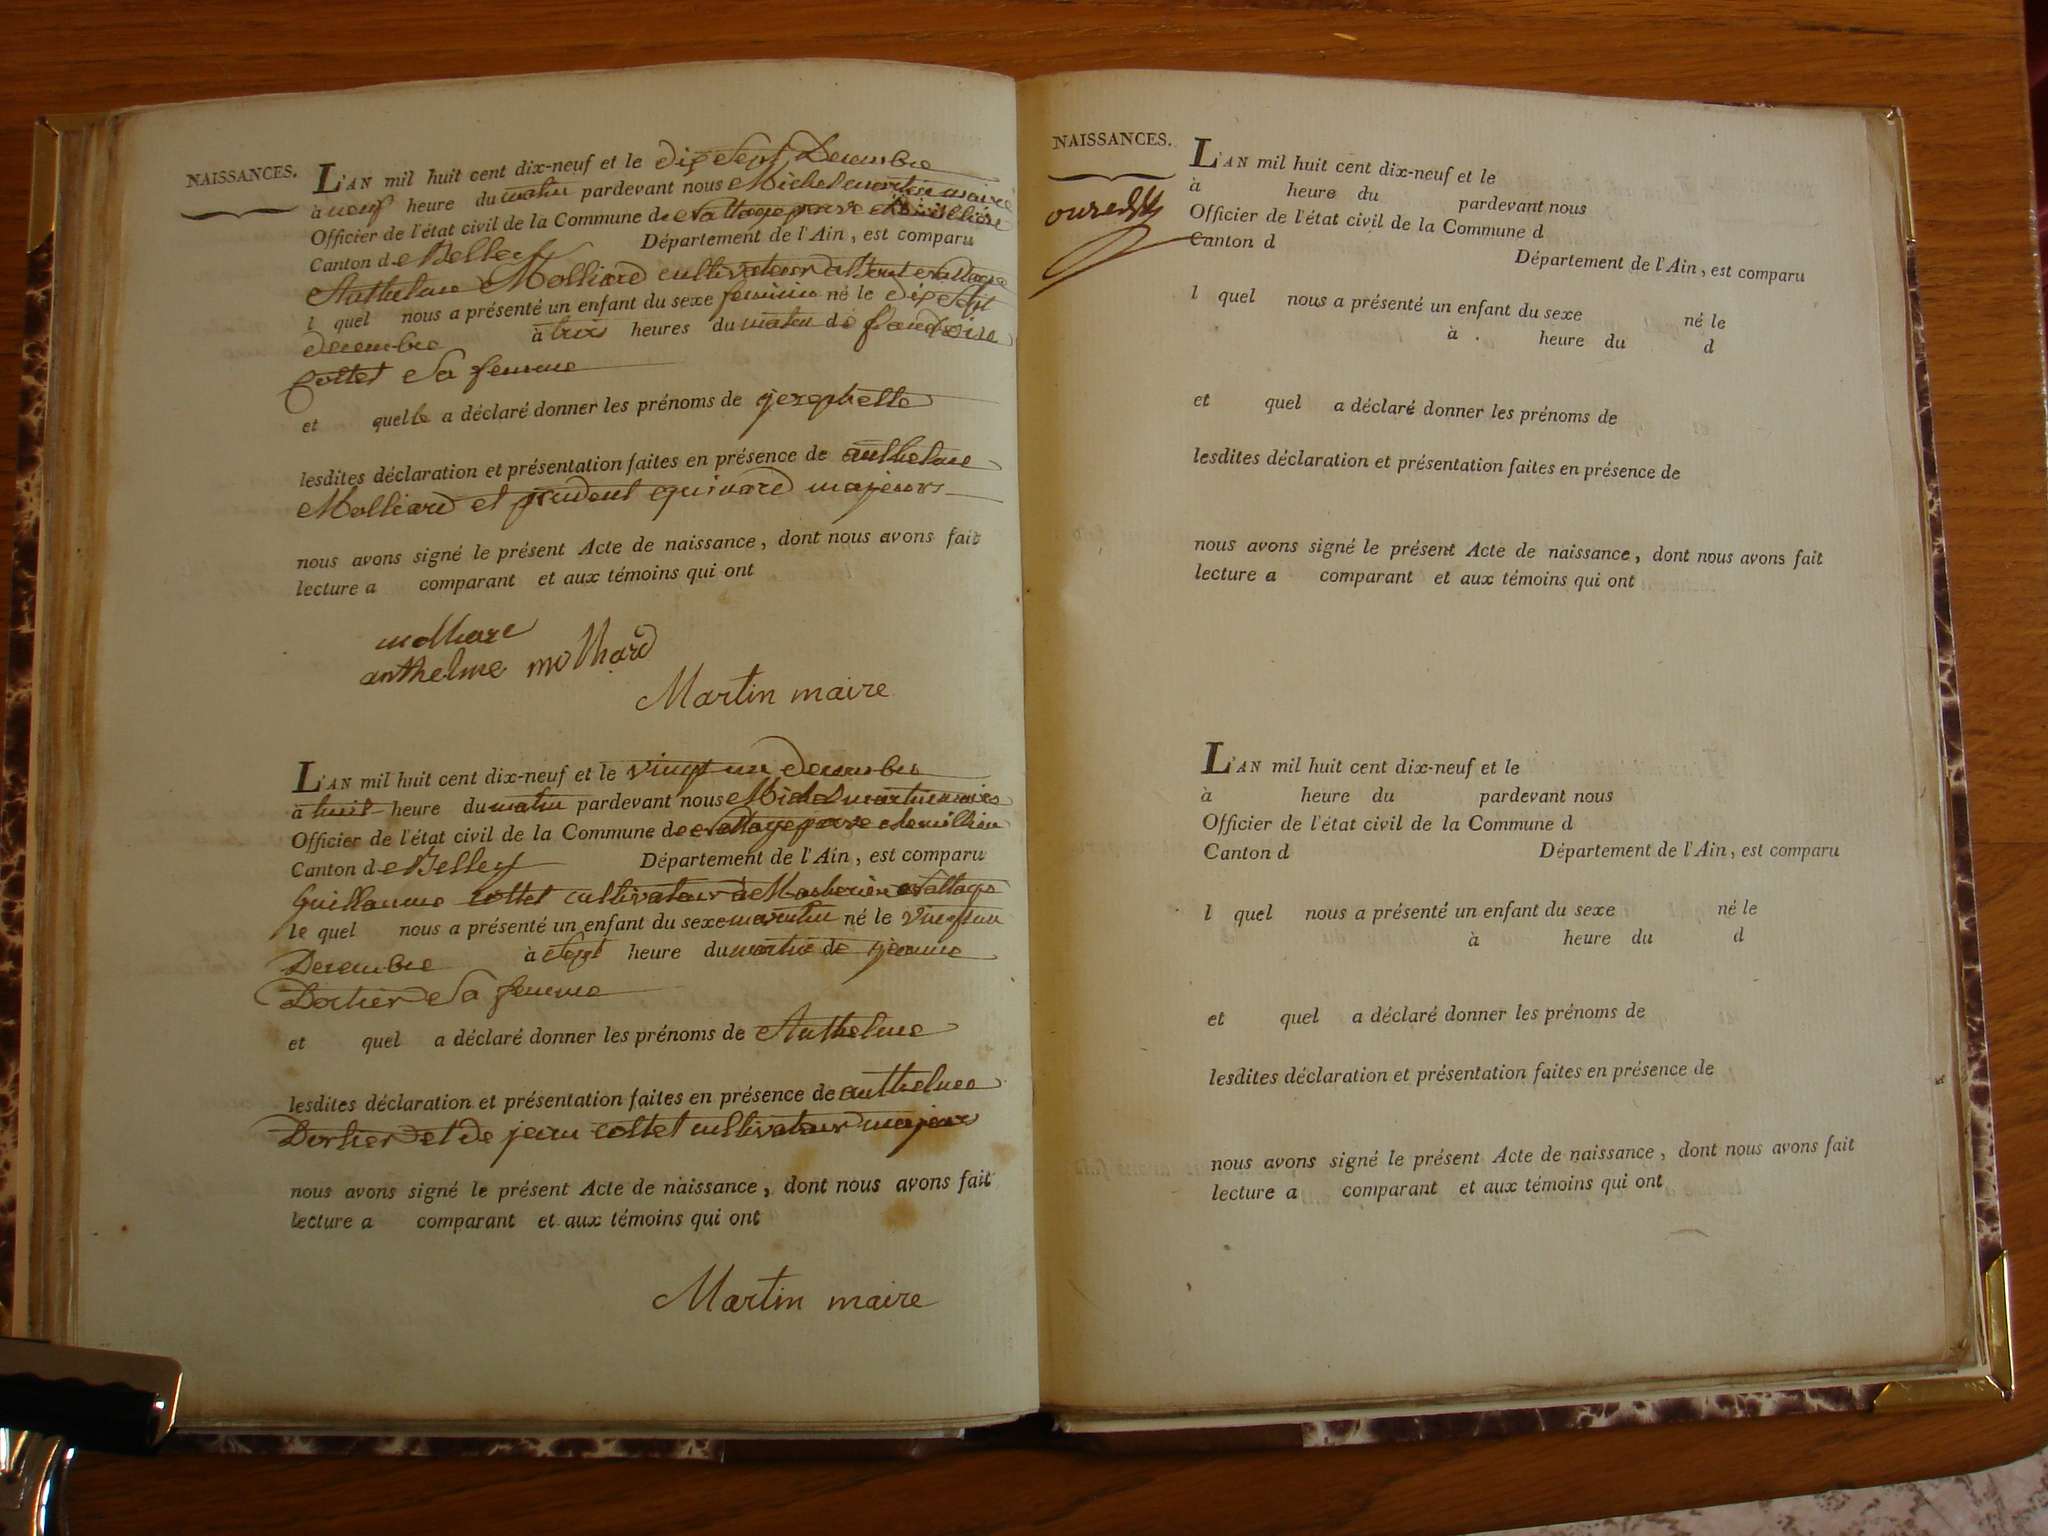 NAISSANCES.
L'AN mil huit cent dix-neuf et le dix Sept Decembre
à neuf heure du matin pardevant nous Michel martin maire
Officier de l'état civil de la Commune de
Canton de Belley Département de l'Ain, est comparu
Anthelme Molliard cultivateur
l quel nous a présenté un enfant du sexe feminin né le dix Sept
decembre à trois heures du matin de francoise
Cottet Sa femme
et quelle a déclaré donner les prénoms de
lesdites déclaration et présentation faites en présence de anthelme
Molliard et prudent quinard majeurs
nous avons signé le présent Acte de naissance, dont nous avons fait
lecture a comparant et aux témoins qui ont
anthelme molliard
Martin maire
L'AN mil huit cent dix-neuf et le vingt un decembre
à huit heure du matin pardevant nous Michel martin maire
Officier de l'état civil de la Commune de
Canton de Belley Département de l'Ain, est comparu
Guillaume cottet cultivateur à
le quel nous a présenté un enfant du sexe masculin né le vingt un
Decembre à Sept heure du matin de jeanne
Dortier Sa femme
et quel a déclaré donner les prénoms de Anthelme
lesdites déclaration et présentation faites en présence de anthelme
Dortier et de jean cottet cultivateur majeur
nous avons signé le présent Acte de naissance, dont nous avons fait
lecture a comparant et aux témoins qui ont
Martin maire
NAISSANCES.
L'AN mil huit cent dix-neuf et le
à heure du pardevant nous
Officier de l'état civil de la Commune d
Canton d Département de l'Ain, est comparu
l quel nous a présenté un enfant du sexe né le
à heure du d
et quel a déclaré donner les prénoms de
lesdites déclaration et présentation faites en présence de
nous avons signé le présent Acte de naissance, dont nous avons fait
lecture a comparant et aux témoins qui ont
L'AN mil huit cent dix-neuf et le
à heure du pardevant nous
Officier de l'état civil de la Commune d
Canton d Département de l'Ain, est comparu
l quel nous a présenté un enfant du sexe né le
à heure du d
et quel a déclaré donner les prénoms de
lesdites déclaration et présentation faites en présence de
nous avons signé le présent Acte de naissance, dont nous avons fait
lecture a comparant et aux témoins qui ont